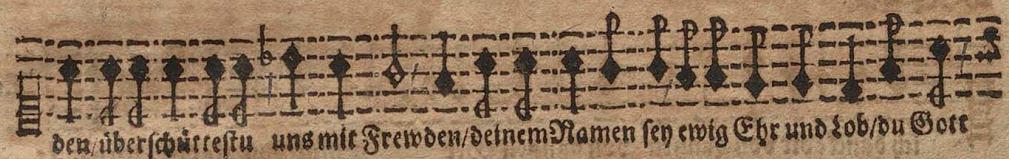 den/überſchütteſtu uns mit Frewden/deinem Namen ſey ewig Ehr und Lob/du Gott